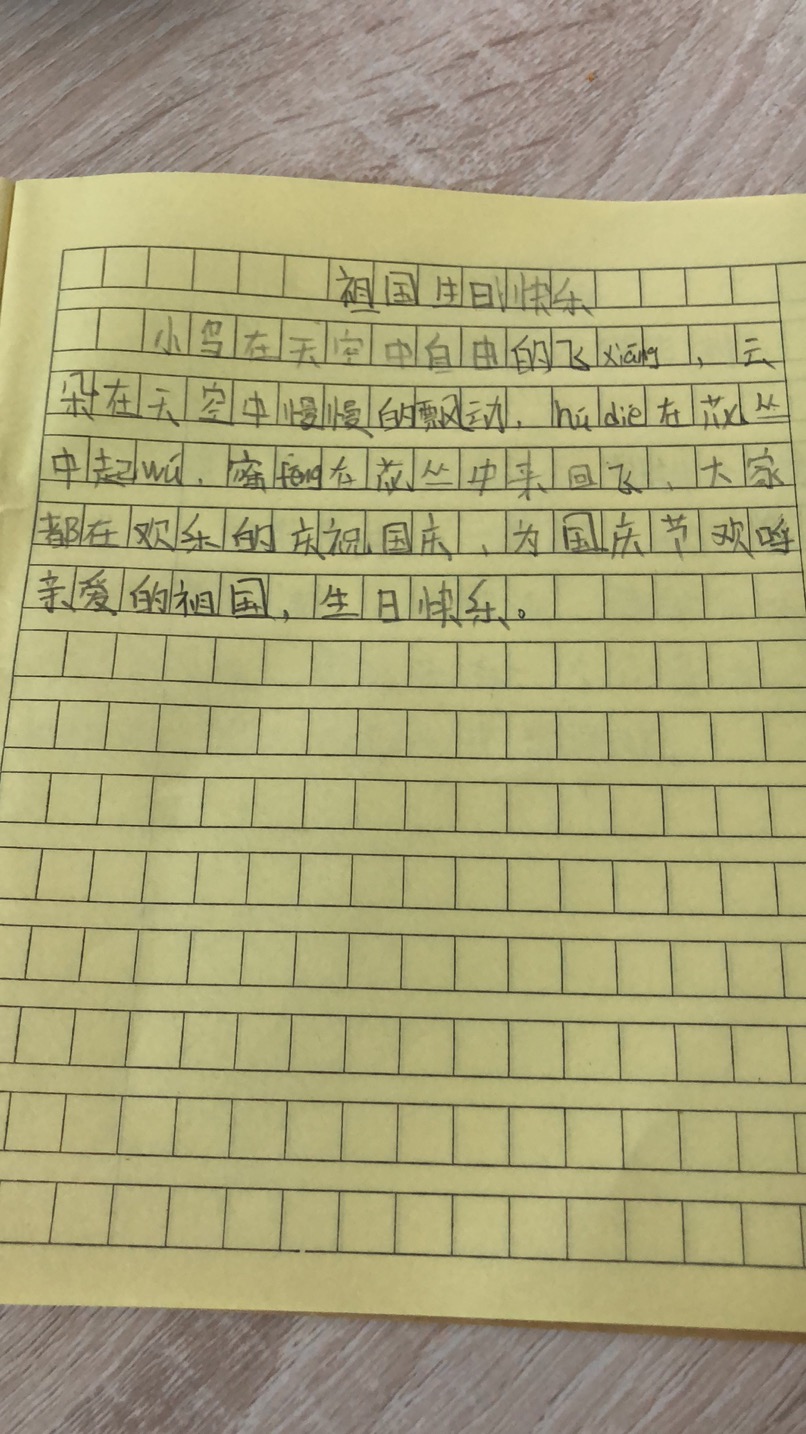 祖国生日快乐
小鸟在天空中自由的飞xiáng,云
朵在天空中慢慢的飘动,hú dié在花丛
中起wú,蜜fēng在花丛中来回飞、大家
都在欢乐的庆祝国庆、为国庆节欢呼
亲爱的祖国,生日快乐。